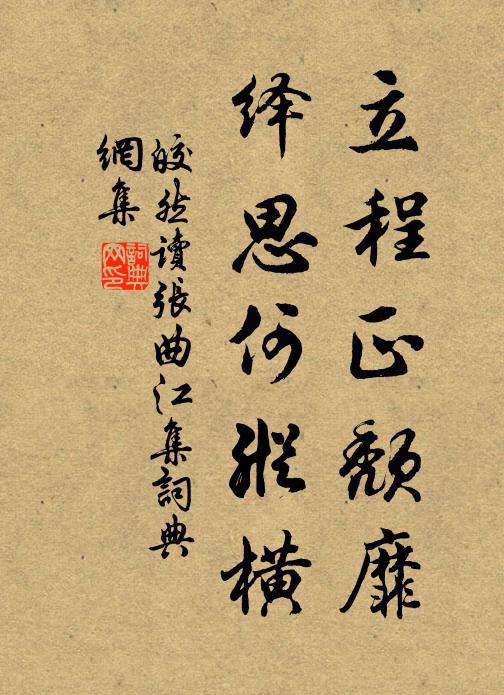 立程正颓靡
绎思何縱橫
皎然讀張曲江集詞典
網集
詞典網印